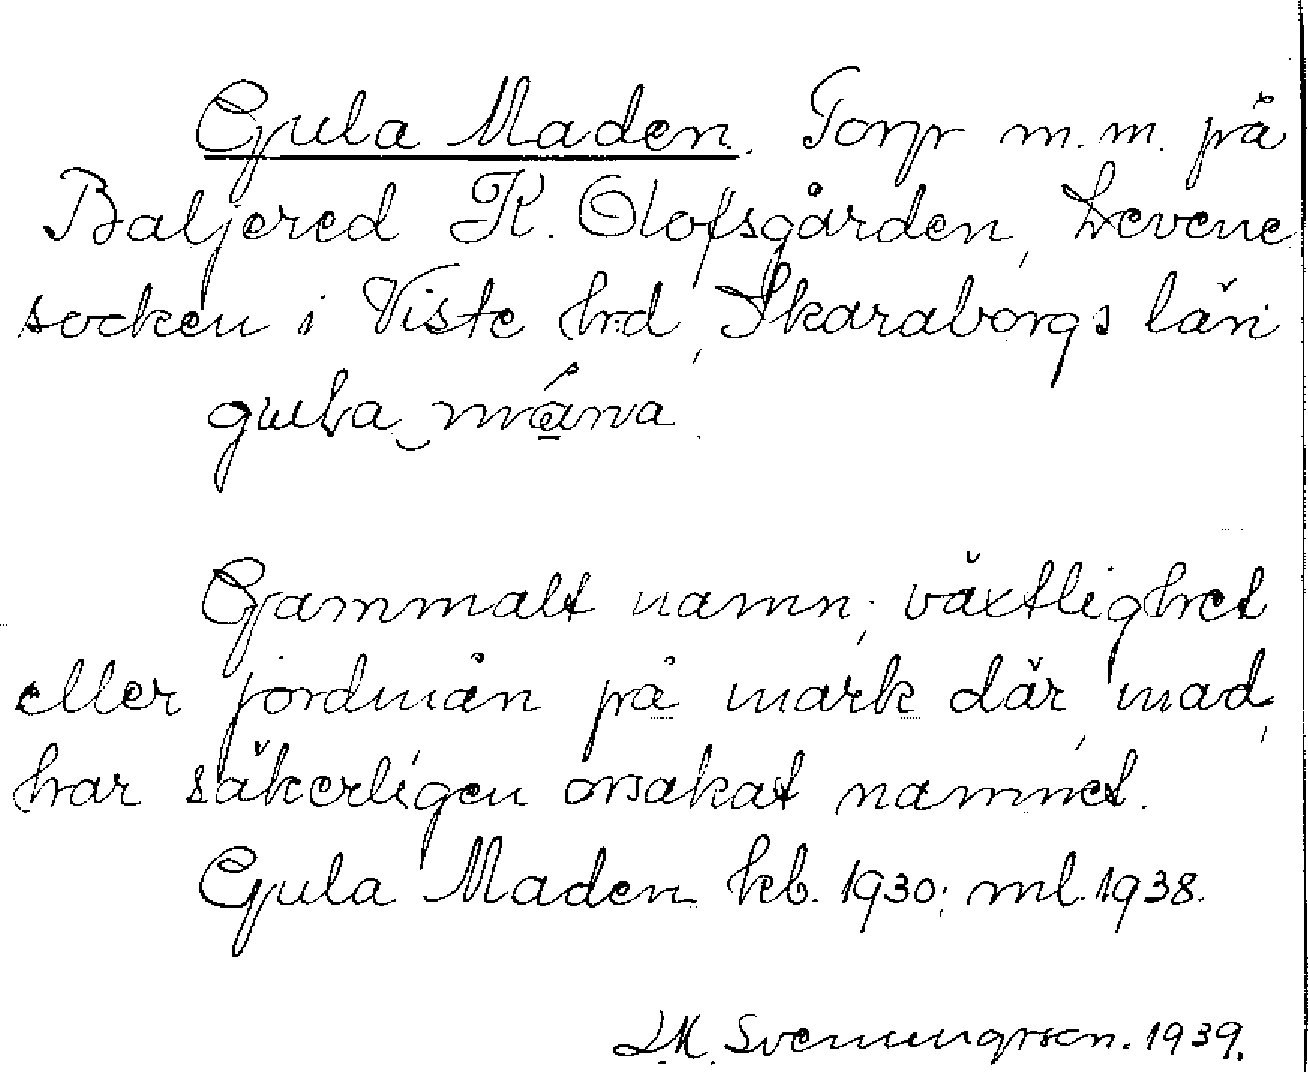 Gula Maden. Torp m.m. på
Baljered K. Olofsgården, Levene
socken i Viste hrd, Skaraborgs län
Gammalt namn; växtlighet
eller jordmån på mark där mad,
har säkerligen orsakat namnet.
Gula Maden kb. 1930; ml. 1938.
Svenungsson. 1939.